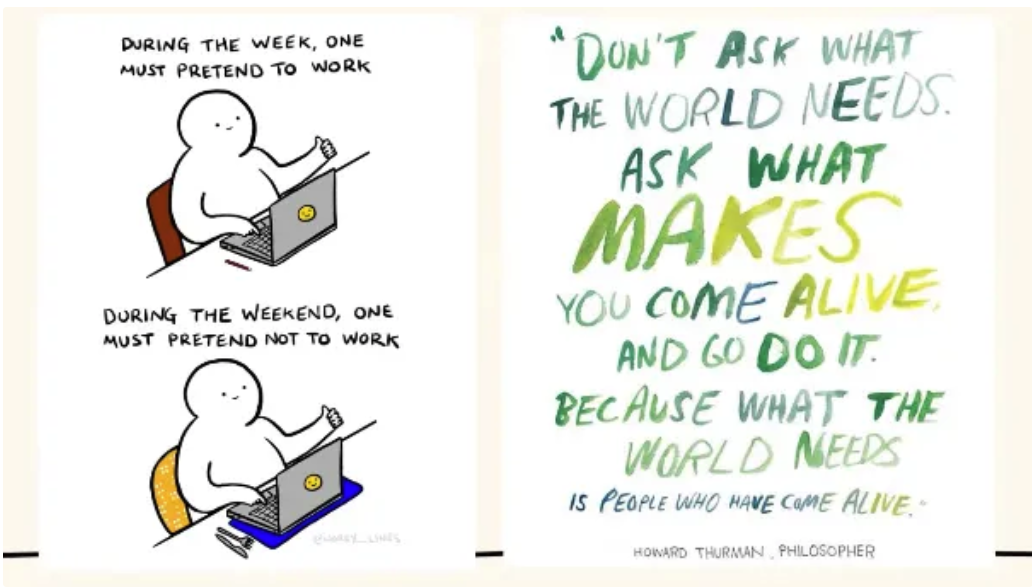 DURING THE WEEK, ONE
MUST PRETEND TO WORK
DURING THE WEEKEND, ONE
MUST PRETEND NOT TO WORK
@WORRY_LINES
"DON'T ASK WHAT
THE WORLD NEEDS.
ASK WHAT
MAKES
YOU COME ALIVE,
AND GO DO IT.
BECAUSE WHAT THE
WORLD NEEDS
IS PEOPLE WHO HAVE COME ALIVE."
HOWARD THURMAN, PHILOSOPHER